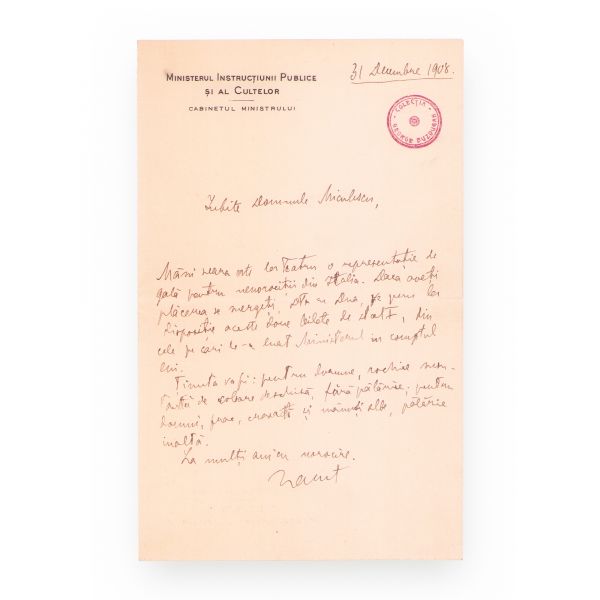 MINISTERUL INSTRUCȚIUNII PUBLICE
ȘI AL CULTELOR
CABINETUL MINISTRULUI
31 Decembre 1908.
COLECȚIA
GEORGE BUZDUGAN
Iubite Domnule Miculescu,
Mâni seara este la Teatru o reprezentație de
gală pentru nenorociții din Italia. Dacă aveți
plăcerea să mergeți, Dta cu Dna, pun la
dispoziție aceste două bilete de stal, din
cele pe cari le-a luat Ministerul în comptul
lui.
Ținuta va fi: pentru doamne, rochie
de coloare deschisă, fără pălărie; pentru
domni, frac, cravată și mănuși albe, pălărie
inaltă.
La mulți ani cu norocire.
Haret